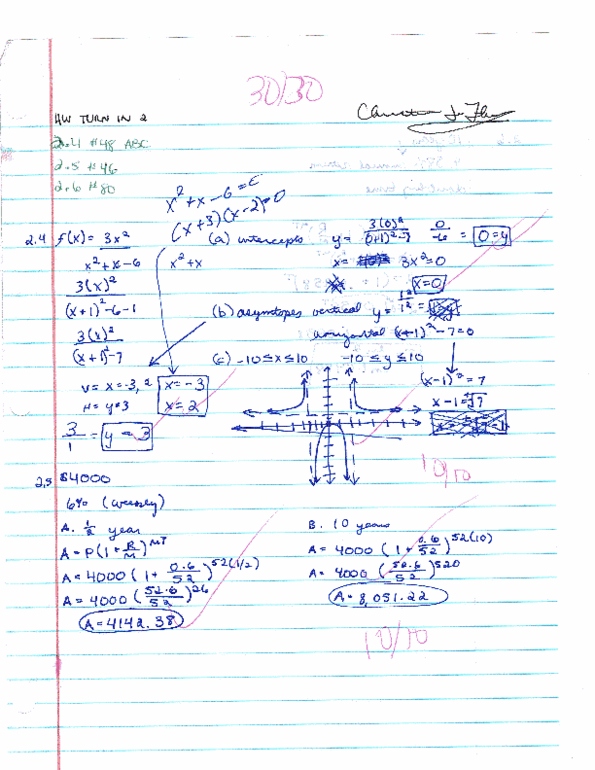 30/30
HW TURN IN 2
2.4 #48 ABC
2.5 #46
2.6 #80
x² + x - 6 = 0
(x+3)(x-2)=0
2.4 f(x) = 3x² / x²+x-6
x²+x
3(x)² / (x+1)²-6-1
3(x)² / (x+1)²-7
V= x=-3, 2
H= y=3
x=-3
x=2
3/1 = y=3
(a) intercepts y = 3(0)²/(0+1)²-7 0/-6 = 0=y
x= 3x²=0
x=0
(b) asymtopes vertical y = 1²/1² =
horizontal (x-1)²-7=0
(x-1)²=7
x-1=√7
(c) -10≤x≤10 -10≤y≤10
10/10
2.5 $4000
6% (weekly)
A. ½ year
A = P(1+R/M)^MT
A = 4000(1+0.6/52)^52(1/2)
A = 4000(52.6/52)^26
A = 4142.38
B. 10 years
A = 4000(1+0.6/52)^52(10)
A = 4000(52.6/52)^520
A = 8,051.22
10/10